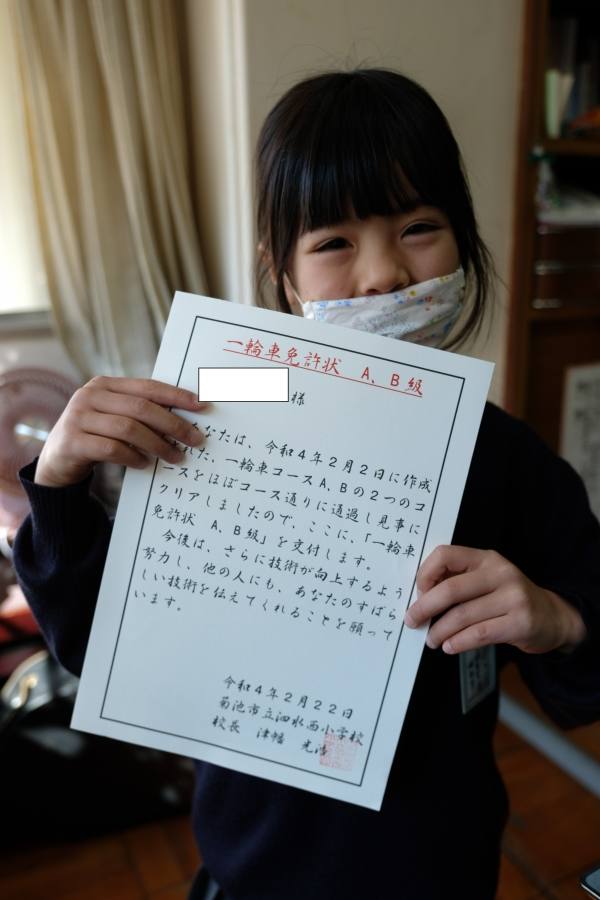 一輪車免許状　A、B級
様
あなたは、令和4年2月2日に作成
された、一輪車コースA、Bの2つのコ
ースをほぼコース通りに通過し見事に
クリアしましたので、ここに、「一輪車
免許状　A、B級」を交付します。
今後は、さらに技術が向上するよう
努力し、他の人にも、あなたのすばら
しい技術を伝えてくれることを願って
います。
令和4年2月22日
菊池市立泗水西小学校
校長　津幡　光浩